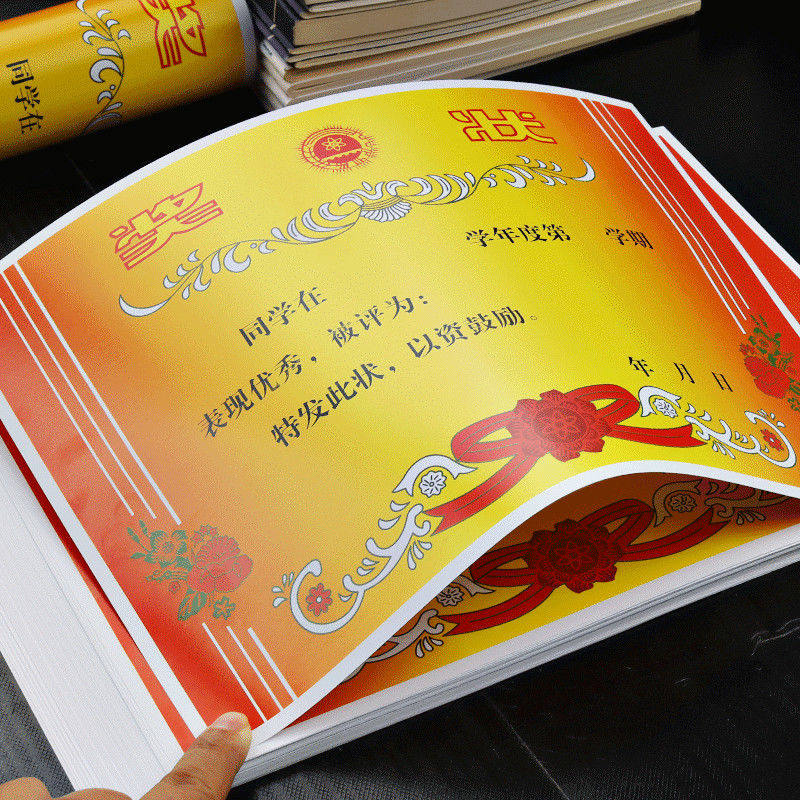 奖
同学在
奖 状
学年度第 学期
同学在 被评为：
表现优秀，
特发此状，以资鼓励。
年 月 日